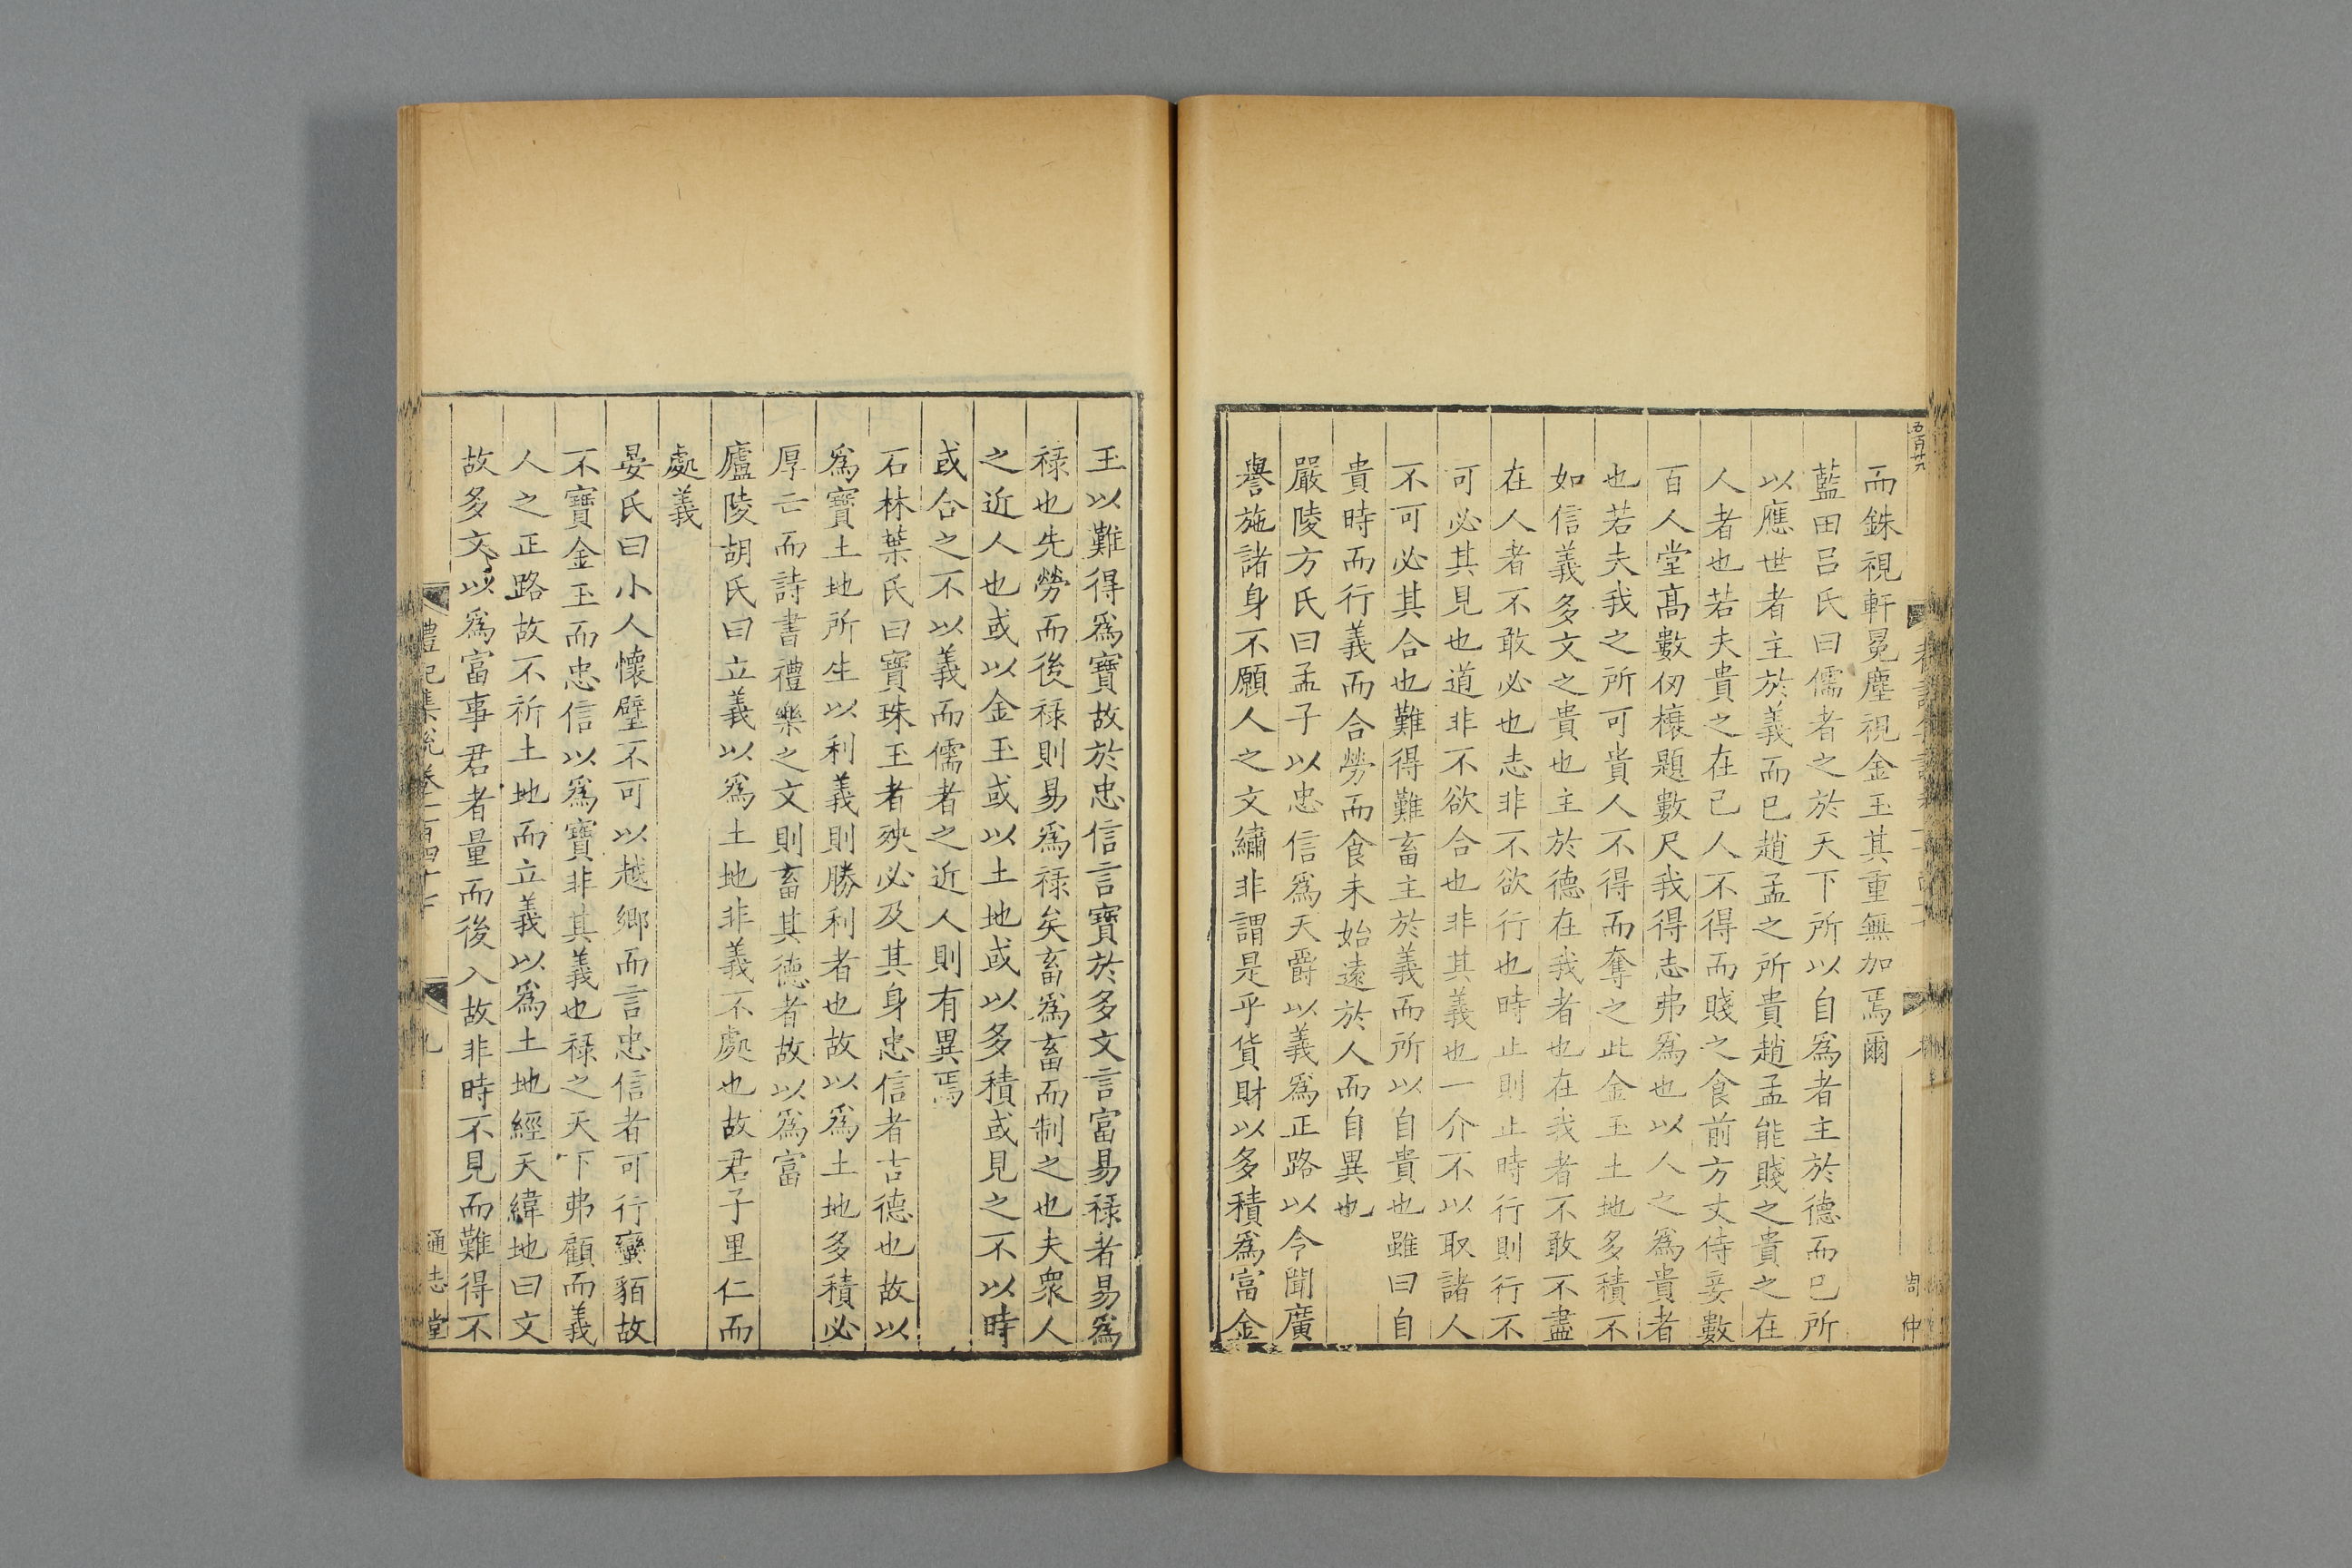 五百廿六
而銖視軒冕塵視金玉其重無加焉爾
藍田呂氏曰儒者之於天下所以自爲者主於德而已所
以應世者主於義而已趙孟之所貴趙孟能賤之貴之在
人者也若夫貴之在己人不得而賤之食前方丈侍妾數
百人堂高數仞榱題數尺我得志弗爲也以人之爲貴者
也若夫我之所可貴人不得而奪之此金玉土地多積不
如信義多文之貴也主於德在我者也在我者不敢不盡
在人者不敢必也志非不欲行也時止則止時行則行不
可必其見也道非不欲合也非其義也一介不以取諸人
不可必其合也難得難畜主於義而所以自貴也雖曰自
貴時而行義而合勞而食未始遠於人而自異也
嚴陵方氏曰孟子以忠信爲天爵以義爲正路以令聞廣
譽施諸身不願人之文繡非謂是乎貨財以多積爲富金
周仲
玉以難得爲寶故於忠信言寶於多文言富易祿者易爲
祿也先勞而後祿則易爲祿矣畜爲畜而制之也夫衆人
之近人也或以金玉或以土地或以多積或見之不以時
或合之不以義而儒者之近人則有異焉
石林葉氏曰寶珠玉者殃必及其身忠信者吉德也故以
爲寶土地所生以利義則勝利者也故以爲土地多積必
厚亡而詩書禮樂之文則畜其德者故以爲富
廬陵胡氏曰立義以爲土地非義不處也故君子里仁而
處義
晏氏曰小人懷璧不可以越鄉而言忠信者可行蠻貊故
不寶金玉而忠信以爲寶非其義也祿之天下弗顧而義
人之正路故不祈土地而立義以爲土地經天緯地曰文
故多文以爲富事君者量而後入故非時不見而難得不
禮記集說卷一百四十七
九
通志堂